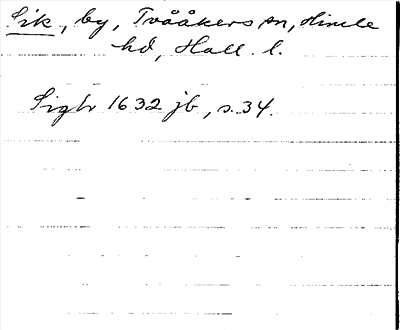 Sik, by, Tvååkers sn, Himle
hd, Hall. l.
Sigh 1632 jb, s. 34.